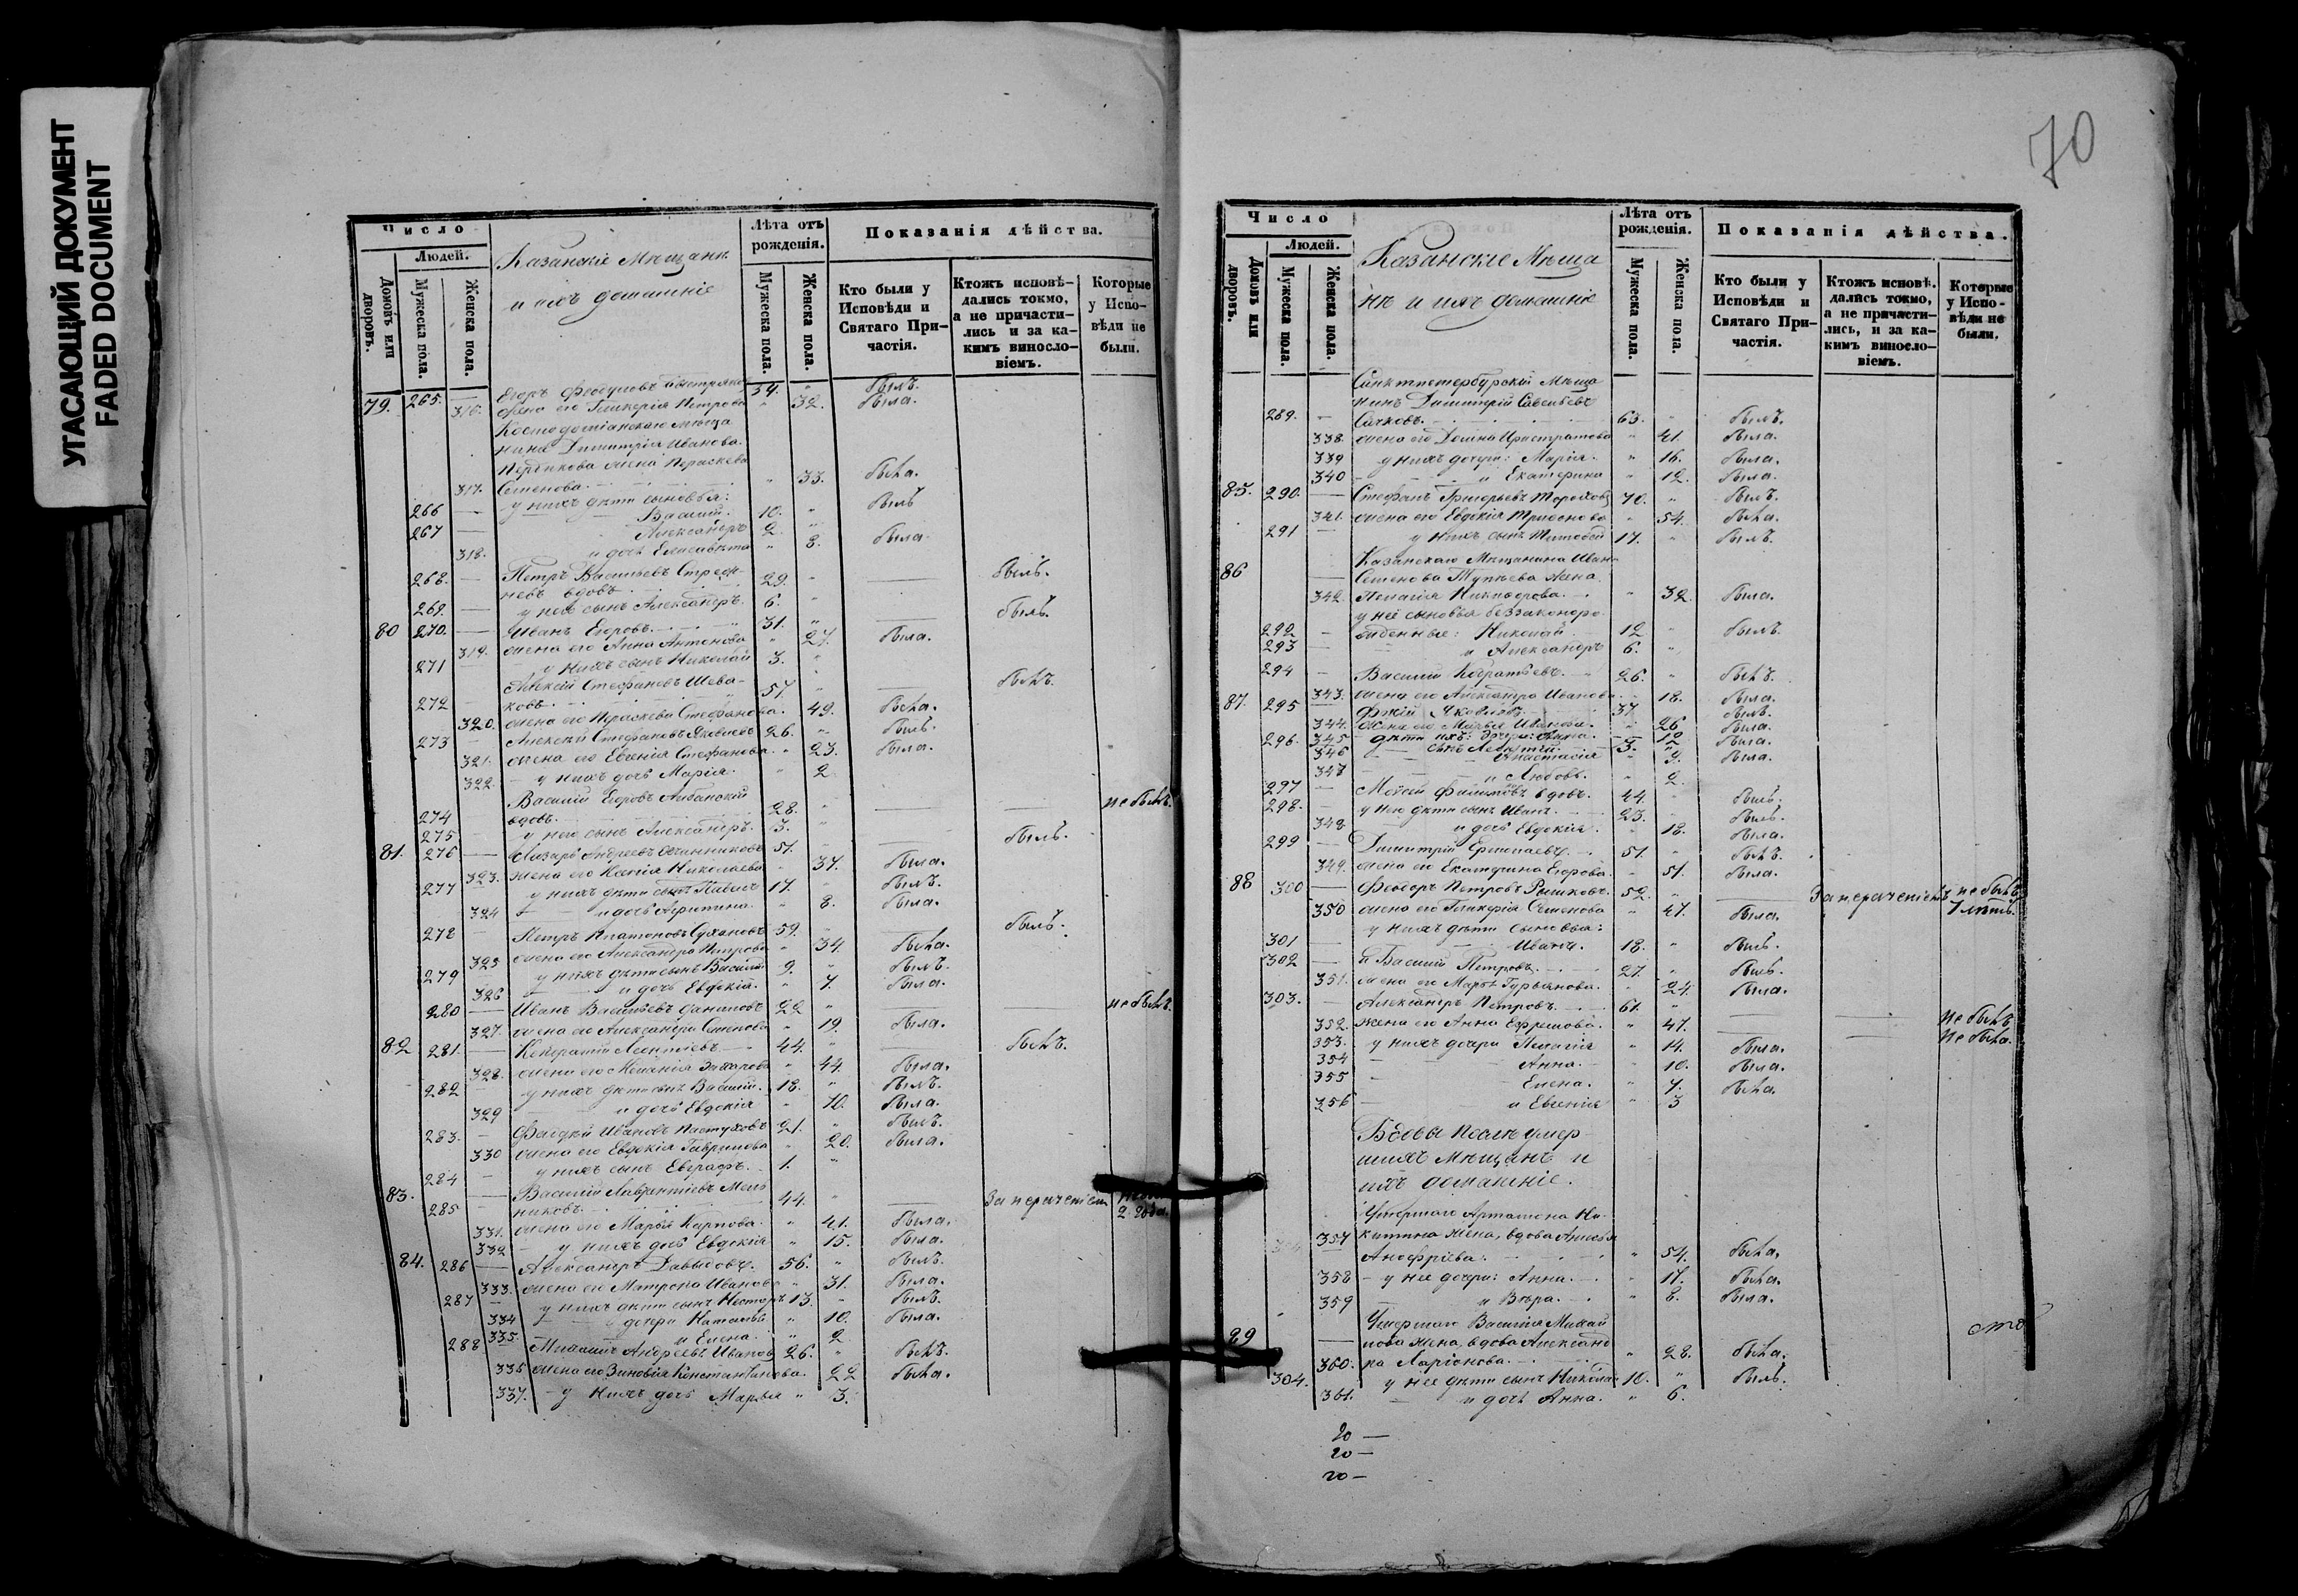 УГАСАЮЩИЙ ДОКУМЕНТ
FADED DOCUMENT
70
Число
Людей.
Домовъ или дворовъ.
Мужеска пола.
Женска пола.
Казанскіе Мѣщане
и ихъ домашніе
Лѣта отъ рожденія.
Мужеска пола.
Женска пола.
Показанія дѣйства.
Кто были у Исповѣди и Святаго При-частія.
Ктожъ исповѣ-дались токмо, а не причасти-лись и за ка-кимъ винословіемъ.
Которые у Испо-вѣди не были.
79. 265. — Егоръ Федуловъ 34. " былъ.
316. жена его Гликерія Петрова " 32. была.
Космодоміанскаго мѣща
нина Димитрія Иванова
жена Параскева
317. Семенова " 33. была.
у нихъ дѣти сыновья:
266 — Василій. 10. " былъ
267 — Александръ 2. "
318. и дочь Елисавета " 8. была
268. — Петръ Васильевъ
невъ вдовъ. 29. " — былъ.
269. — у него сынъ Александръ. 6. "
80 270. — Иванъ Егоровъ. 31. " — былъ.
319. жена его Анна Антонова " 27. была.
271 у нихъ сынъ Николай 3. "
Алексѣй Стефановъ Шева-
272 — ковъ. 57. " — былъ.
320. жена его Параскева Стефанова. 49. была.
273 — Алексѣй Стефановъ Яковлевъ 26. " былъ.
321. жена его Евгенія Стефанова. " 23. была.
322. у нихъ дочь Марія. " 2
Василій Егоровъ
274 вдовъ. 28. " — — не былъ.
275 у него сынъ Александръ. 3. "
81. 276 — Лазарь Андреевъ Овчинниковъ 51. " былъ.
323. жена его Ксенія Николаева " 37. была.
277 у нихъ дѣти сынъ Павелъ 17. " былъ.
324 и дочь " 8. была.
278 — Петръ Платоновъ Сухановъ 59. " былъ.
325 жена его Александра Петрова " 34 была.
279 у нихъ дѣти сынъ Василій 9. " былъ.
326 и дочь Евдокія. " 7. была.
280 — Иванъ Васильевъ Даниловъ 22 " — — не былъ.
327. жена его Александра Семенова " 19. была.
82 281. — Леонтіевъ 44. " — былъ.
328. жена его Меланія Захарова " 44. была.
282 — у нихъ дѣти сынъ Василій. 18. " былъ.
329 и дочь Евдокія " 10. была.
283. — Фаддей Ивановъ Пастуховъ 21. " былъ.
330 жена его Евдокія Гаврилова " 20. была.
284 — у нихъ сынъ Евграфъ. 1. "
83. Василій Лаврентіевъ Мель
285 — никовъ. 44. " — За нераченіемъ 2 года.
331. жена его Марья Карпова. " 41. была.
332 — у нихъ дочь Евдокія " 15. была.
84. 286 — Александръ Давыдовъ. 56. " былъ.
333. жена его Матрона Иванова " 31. была.
287 — у нихъ дѣти сынъ Несторъ 13. " былъ.
334 дочери Наталья " 10. была.
335 и Елена. " 2
288 — Михаилъ Андреевъ Ивановъ 26. " былъ.
335 жена его Зиновія Константинова. 22 была.
337. — у нихъ дочь Марья " 3.
Число
Людей.
Домовъ или дворовъ.
Мужеска пола.
Женска пола.
Казанскіе Мѣща
не и ихъ домашніе
Лѣта отъ рожденія.
Мужеска пола.
Женска пола.
Показанія дѣйства.
Кто были у Исповѣди и Святаго При-частія.
Ктожъ исповѣ-дались токмо, а не причасти-лись, и за ка-кимъ винословіемъ.
Которые у Испо-вѣди не были.
Санктпетербурскій Мѣща
нинъ Димитрій Савельевъ
289. — Сачковъ. 63. " былъ.
338. жена его Домна " 41. была.
339 у нихъ дочери: Марія. " 16. была.
340 и Екатерина " 12. была.
85. 290. — Стефанъ Григорьевъ 70. " былъ.
341. жена его Евдокія " 54. была.
291 — у нихъ сынъ Тимофей 17. " былъ.
Казанскаго Мѣщанина Иван
86 — Семенова жена
342. Пелагія Никифорова. " 32. была.
у неё сыновья беззаконоро
292 — жденные: Николай 12 " былъ.
293 — и Александръ 6. "
294 — Василій 26. " былъ.
343. жена его Александра Иванова. 18. была.
87. 295 Яковлевъ 37 былъ.
344. жена его Марья Иванова. " 26 была.
345 дѣти ихъ: дочери: Анна. 12 была.
296. сынъ Леонтій. 3. "
346 Анастасія " 9. была.
347 и Любовь. " 2.
297 — вдовъ. 44. " былъ.
298. — у него дѣти сынъ Иванъ. 23. " былъ.
348 и дочь Евдокія. " 18. была.
299 — Димитрій Ермолаевъ. 51. " былъ.
349. жена его Екатерина Егорова. " 51. была.
88 300 — Феодоръ Петровъ Рышковъ. 52. " — За нераченіемъ не былъ 7 лѣтъ.
350 жена его Гликерія Семенова " 47. была.
у нихъ дѣти сыновья:
301 — Иванъ. 18. " былъ.
302 — и Василій Петровъ. 27. " былъ.
351. жена его Марѳа Гурьянова. " 24. была.
303. — Александръ Петровъ. 61. — — не былъ
352. жена его Анна Ефремова. " 47. — — не была.
353. у нихъ дочери Пелагія " 14. была.
354 — Анна. " 10. была.
355 — Елена. " 7. была
356 — и Евгенія " 3
Вдовы послѣ умер
шихъ Мѣщанъ и
ихъ домашніе.
Умершаго Артамона Ни-
357 китина жена, вдова
Анофріева. " 54. была.
358 — у нее дочери: Анна. " 17. была.
359 — и Вѣра. " 8. была.
Умершаго Василія Михай
89 — лова жена, вдова Александ
360. ра Ларіонова. " 28. была.
304. у нее дѣти сынъ Николай 10. " былъ.
361. и дочь Анна. " 6.
20 —
20 —
20 —